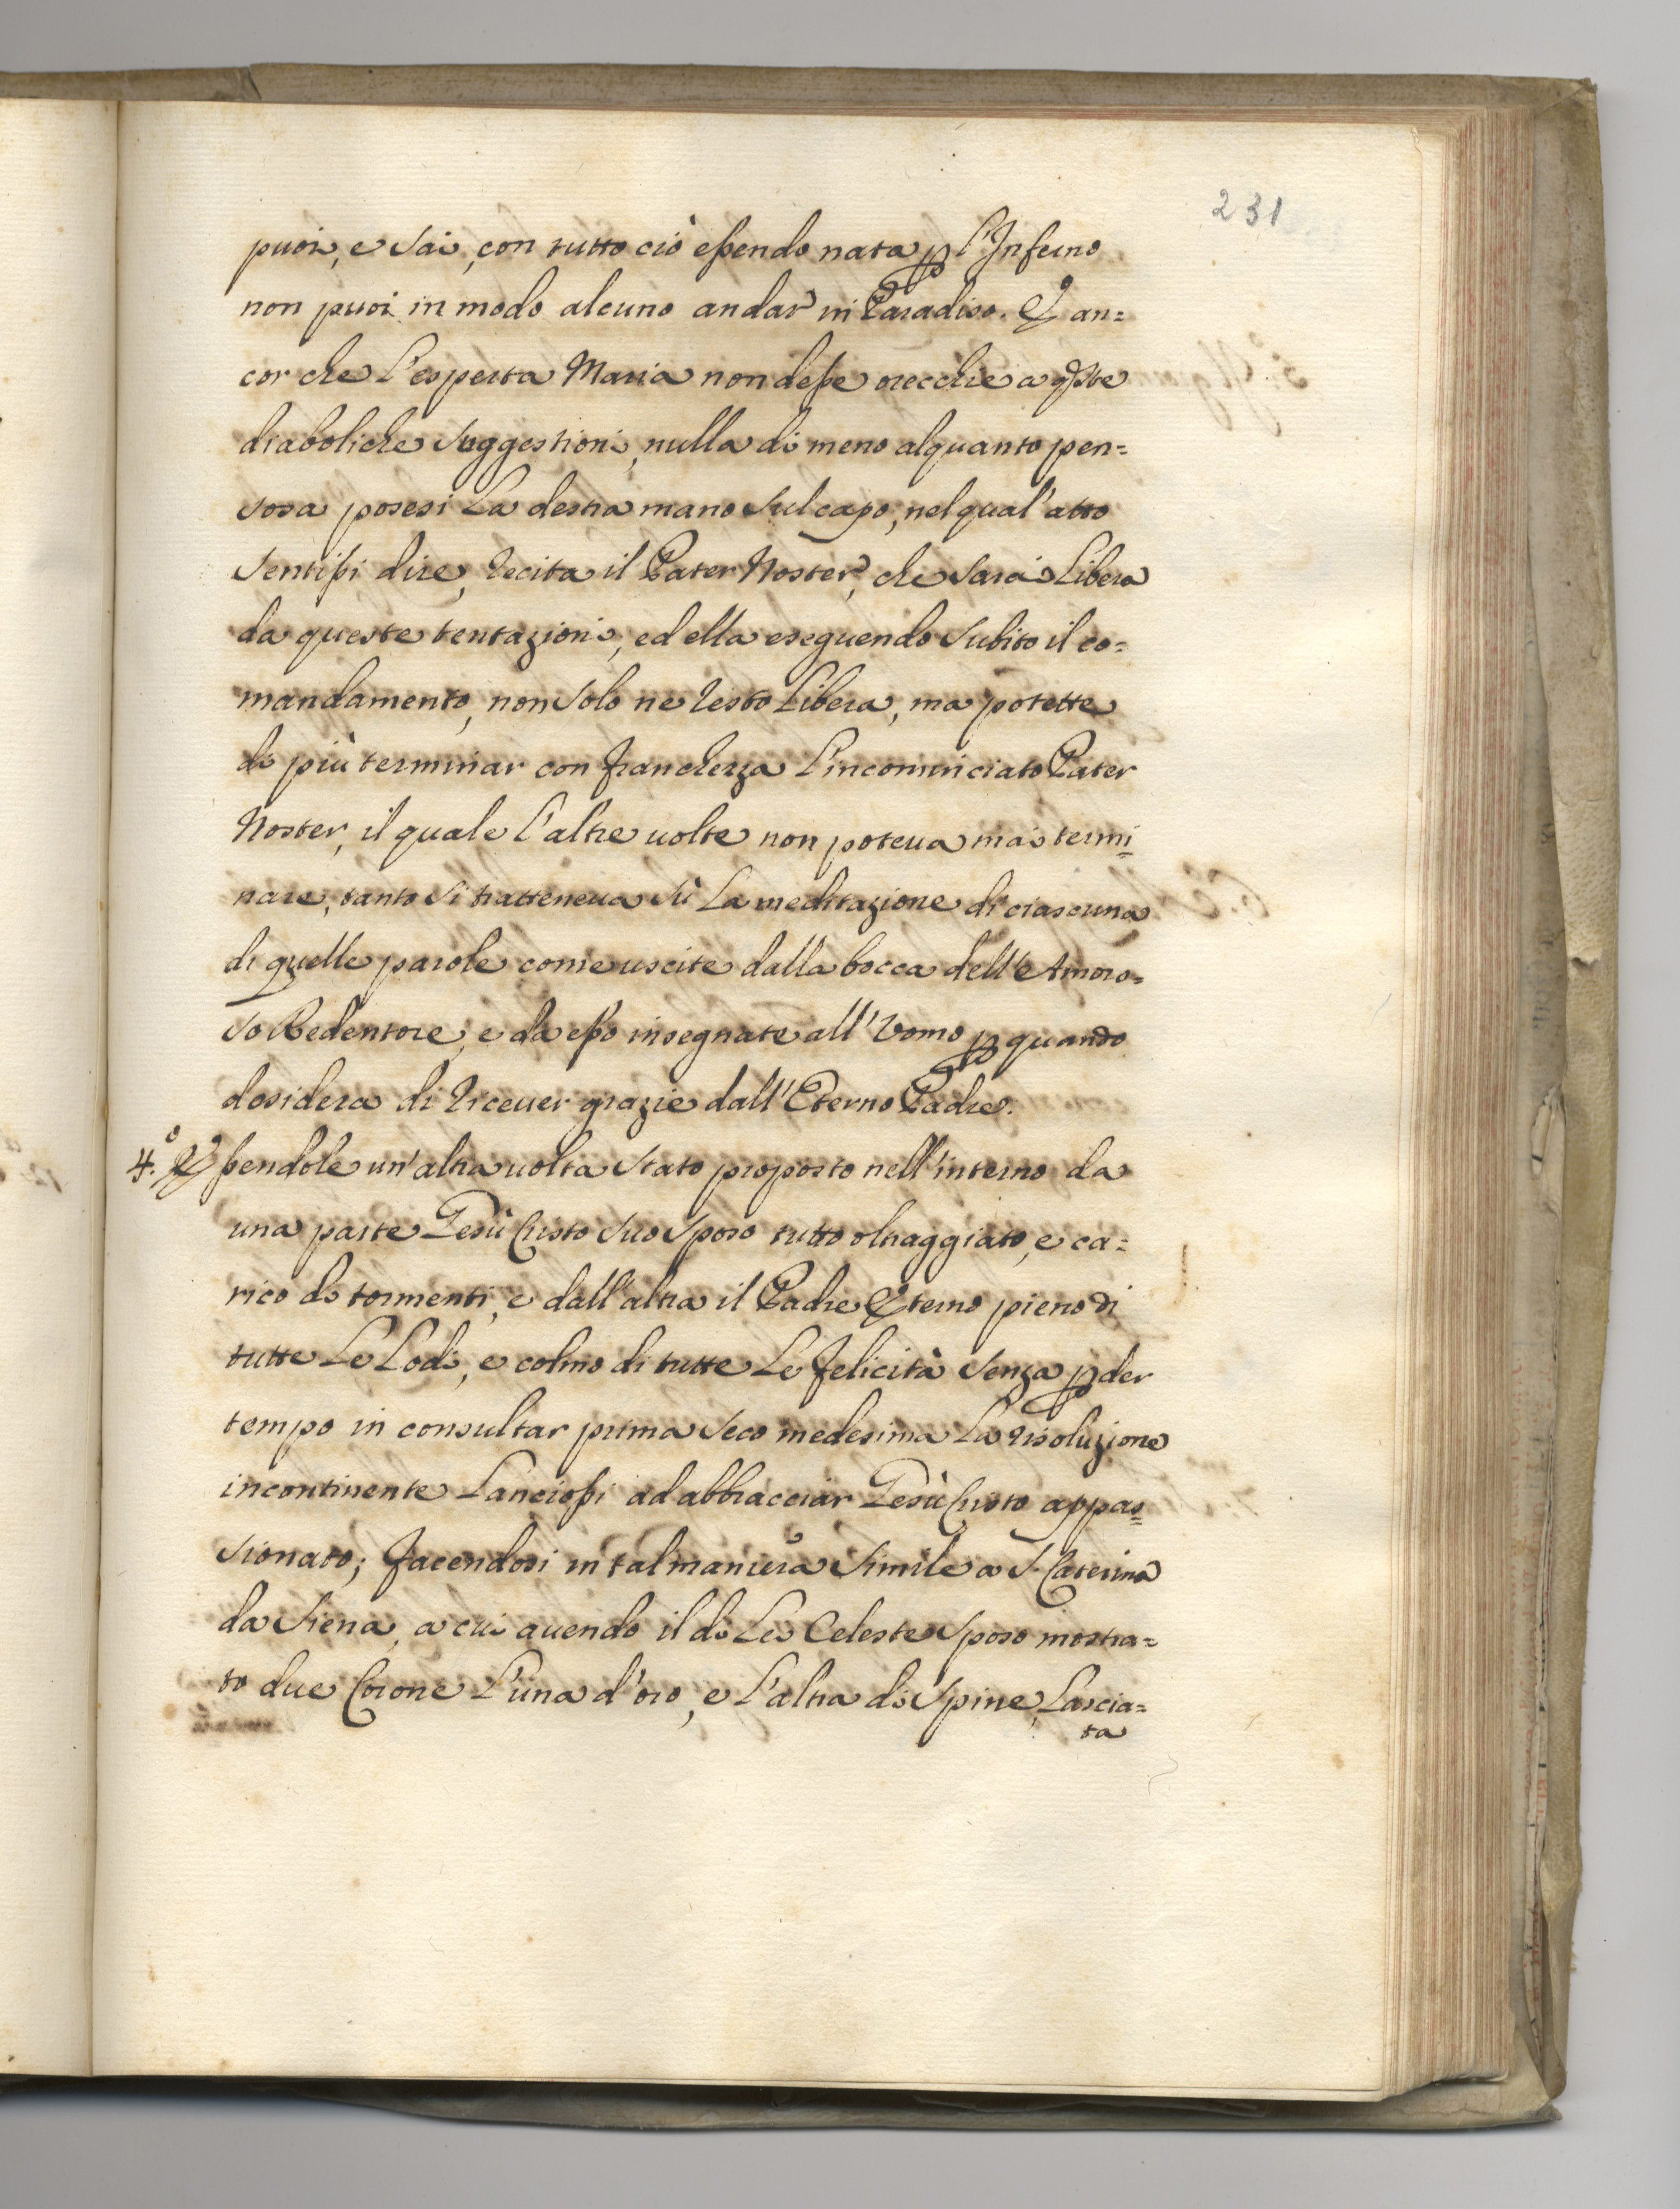 231
puoi, e sai, con tutto ciò eßendo nata p l'Inferno
non puoi in modo alcuno andar in Paradiso. E an=
cor che l'esperta Maria non deße orecchie a qste
diaboliche suggestioni, nulla di meno alquanto pen=
sosa posesi la destra mano sul capo, nel qual'atto
sentißi dire, recita il Pater Noster, che sarai libera
da queste tentazioni, ed ella eseguendo subito il co=
mandamento, non solo ne restò libera, ma potette
di più terminar con franchezza l'incominciato Pater
Noster, il quale l'altre uolte non poteua mai termi=
nare, tanto si tratteneua sù la meditazione di ciascuna
di quelle parole come uscite dalla bocca dell'Amoro=
so Redentore, e da eßo insegnate all'Vomo p quando
desidera di riceuer grazie dall'Eterno Padre.
4.° Eßendole un'altra uolta stato proposto nell'interno da
una parte Gesù Cristo suo sposo tutto oltraggiato, e ca=
rico di tormenti, e dall'altra il Padre Eterno pieno di
tutte le lodi, e colmo di tutte le felicità senza pder
tempo in consultar prima seco medesima la risoluzione
incontinente lancioßi ad abbracciar Gesù Cristo appas=
sionato; facendosi in tal maniera simile a S. Caterina
da Siena, a cui auendo il di lei Celeste sposo mostra=
to due Corone l'una d'oro, e l'altra di spine, lascia=
ta